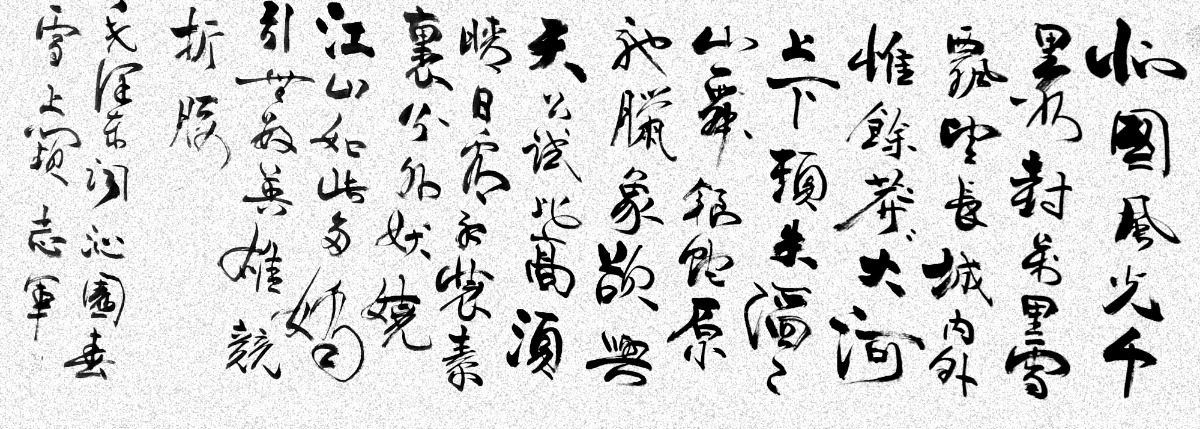 北國風光千
里冰封萬里雪
飄望長城內外
惟餘莽〻大河
上下頓失滔〻
山舞銀蛇原
馳臘象欲與
天公試比高須
晴日看紅裝素
裹分外妖嬈
江山如此多嬌
引無數英雄競
折腰
毛澤東詞沁園春
雪 志軍